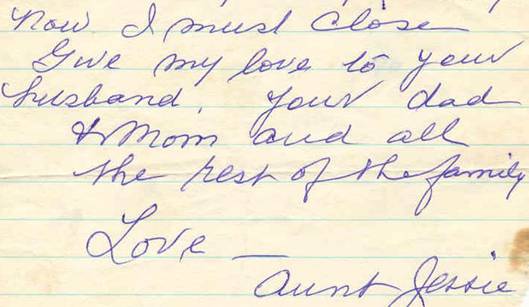 Now I must close
Give my love to your
husband, your dad
& Mom and all
the rest of the family
Love —
Aunt Jessie